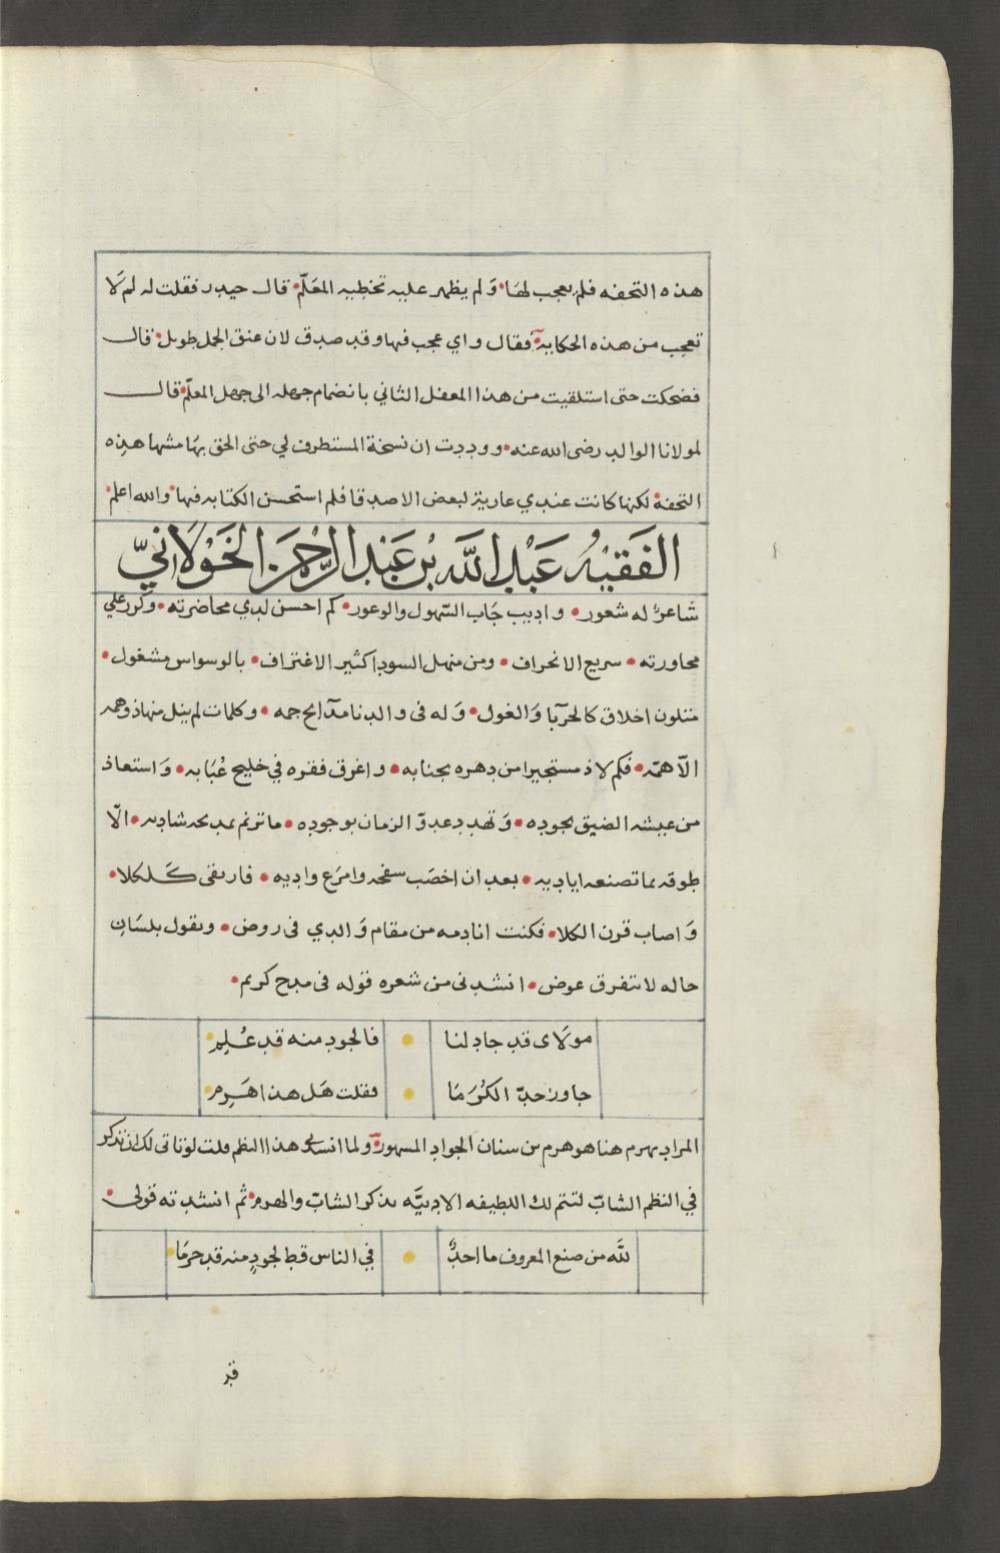 هذه التحفه فلم يعجب لها • ولم يظهر عليه تخطيه المعلّم • قال حيدر فقلت له لم لا
تعجب من هذه الحكاية • فقال واي عجب فيها وقد صدق لان عنق الجمل طويل • قال
فضحكت حتى استلقيت من هذا المغفل الثاني بانضمام جهله الى جهل المعلّم • قال
لمولانا الوالد رضى الله عنه • ووددت ان نسخة المستطرف لي حتى الحق بهامشها هذه
التحفة • لكنها كانت عندي عارية لبعض الاصدقا فلم استحسن الكتابه فيها • والله اعلم •
الفَقيْهُ عَبْدالله بْن عَبْدالرَّحْمَن الخَوْلَانيّ
شاعرٌ له شعور • واديب جَاب السّهول والوعور • كم احسن لدي محاضرته • وكرر علي
محاورته • سريع الانحراف • ومن منهل السودا كثير الاغتراف • بالوسواس مشغول •
متلون اخلاق كالحربا والغول • وله في والدنا مدايح جمه • وكلمات لم ينل منها ذو همه
الّا همّه • فكم لاذ مستجيرا من دهره بجنابه • واغرق فقره في خليج عُبَابه • واستعاذ
من عيشه الضيق بجوده • وتهدد عدوّ الزمان بوجوده • ما ترنم بمديحه شاديه • الّا
طوقه بما تصنعه اياديه • بعد ان اخصَب سفحه وامرَع واديه • فارتقى كلكلا •
واصاب قرن الكلا • فكنت انادمه من مقام والدي في روض • ويقول بلسَان
حاله لا نتفرق عوض • انشدني من شعره قوله في مدح كريم •
مولَاى قد جاد لنا • فالجود منه قد عُلِم •
جاوز حدّ الكُرَمَا • فقلت هَل هذا هَرِم •
المراد بهرم هنا هو هرم بن سنان الجواد المشهور • ولما انشدني هذا النظم قلت لو تاتى لك ان تذكر
في النظم الشابّ لتتم لك اللطيفه الادبيّه بذكر الشابّ والهرم • ثم انشدته قولي •
للّه من صنع المعروف ما احدٌ • في الناس قط لجودٍ منه قد حرمَا •
قد